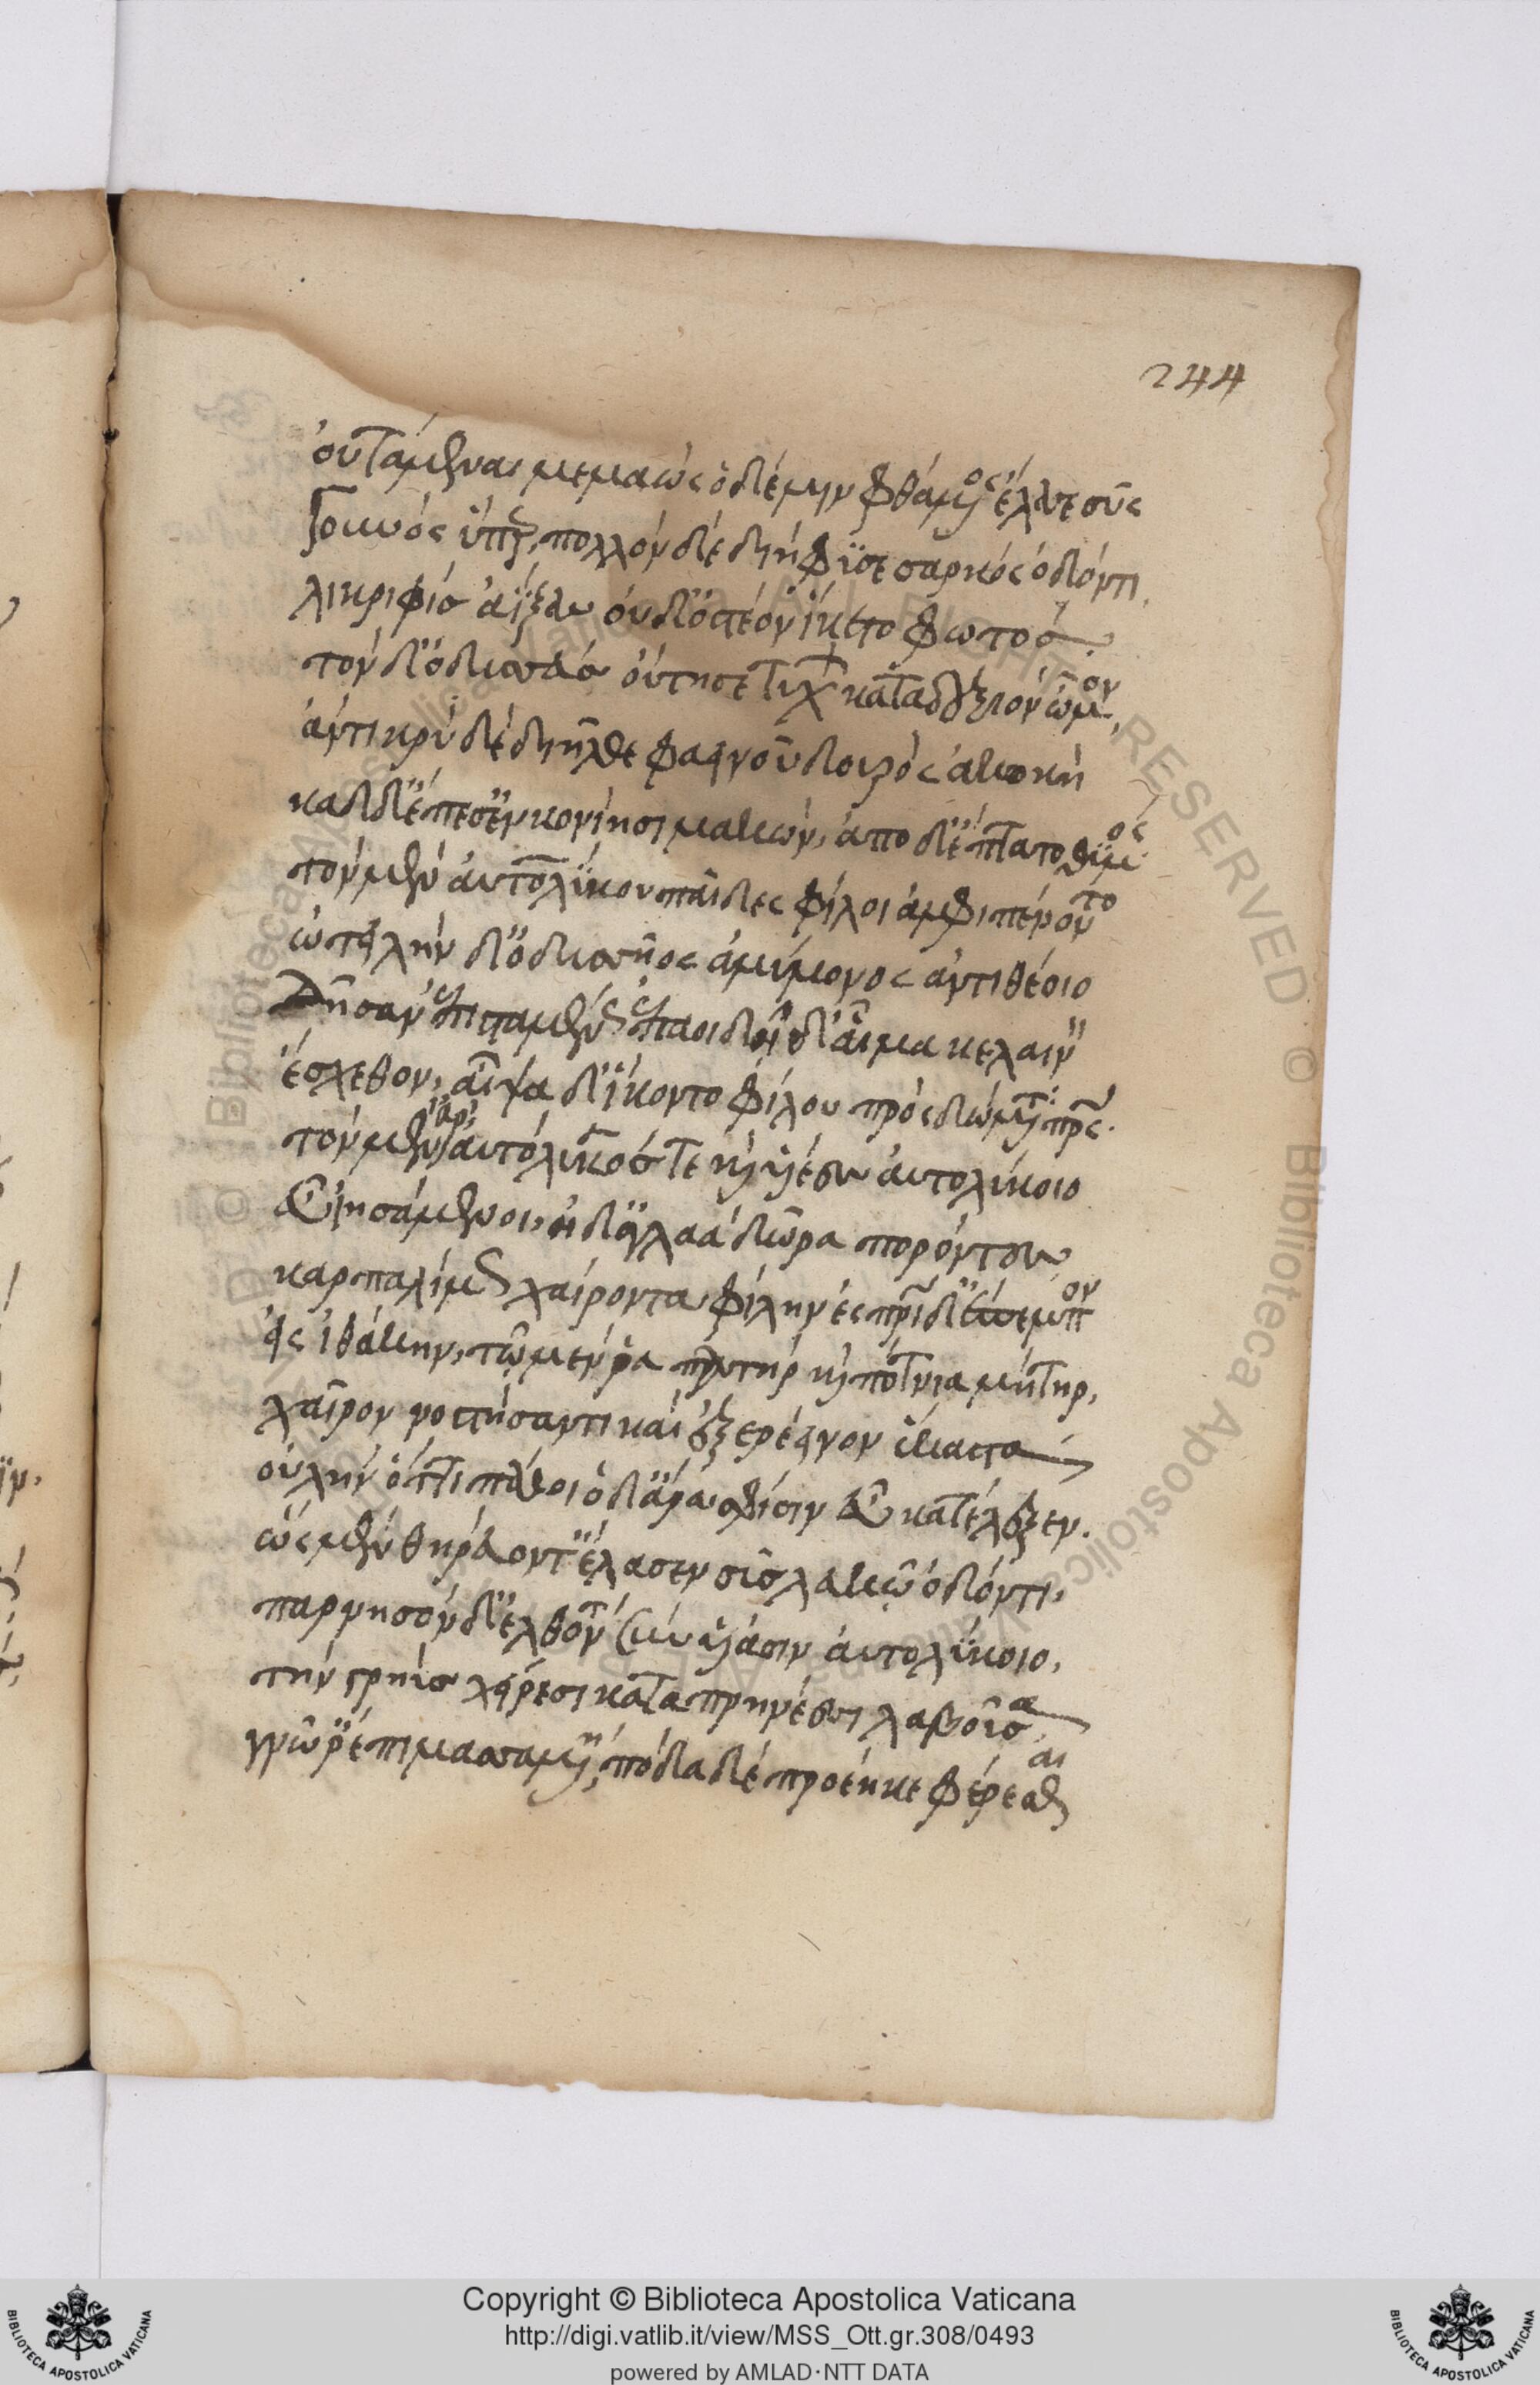 244
οὐτάμεναι μεμαώς· ὁ δέ μιν φθάμενος ἔλασε σῦς
γουνὸς ὕπερ, πολλὸν δὲ διήφυσε σαρκὸς ὀδόντι,
λικριφὶς ἀΐξας οὐδ' ὀστέον ἵκετο φωτός.
τὸν δ' ὀδυσσεὺς οὔτησε τυχὼν κατὰ δεξιὸν ὦμον,
ἀντικρὺ δὲ διῆλθε φαεινοῦ δουρὸς ἀκωκή
κὰδ δ' ἔπεσ' ἐν κονίῃσι μακών, ἀπὸ δ' ἔπτατο θυμός
τὸν μὲν αὐτολύκου παῖδες φίλοι ἀμφιπένοντο
ὠτειλὴν δ' ὀδυσσῆος ἀμύμονος ἀντιθέοιο
δῆσαν ἐπισταμένως ἐπαοιδῇ δ' αἷμα κελαινὸν
ἔσχεθον, αἶψα δ' ἵκοντο φίλου πρὸς δώματα πατρός.
τὸν μὲν ἄρ' αὐτόλυκός τε καὶ υἱέες αὐτολύκοιο
εὖ ἰησάμενοι, ἠδ' ἀγλαὰ δῶρα πορόντες
καρπαλίμως χαίροντα φίλην ἐς πατρίδ' ἔπεμπον
εἰς ἰθάκην, τῷ μέν ῥα πατὴρ καὶ πότνια μήτηρ,
χαῖρον νοστήσαντι καὶ ἐξερέεινον ἕκαστα
οὐλὴν ὅττι πάθοι· ὁ δ' ἄρα σφίσιν εὖ κατέλεξεν.
ὥς μὲν θηρεύοντ' ἔλασεν σῦς λευκῷ ὀδόντι,
παρνησόνδ' ἐλθόντα σὺν υἱάσιν αὐτολύκοιο,
τὴν γρηῢς χείρεσι καταπρηνέσσι λαβοῦσα
γνῶ ῥ' ἐπιμασσαμένη, πόδα δὲ προέηκε φέρεσθαι
Copyright © Biblioteca Apostolica Vaticana
http://digi.vatlib.it/view/MSS_Ott.gr.308/0493
powered by AMLAD·NTT DATA